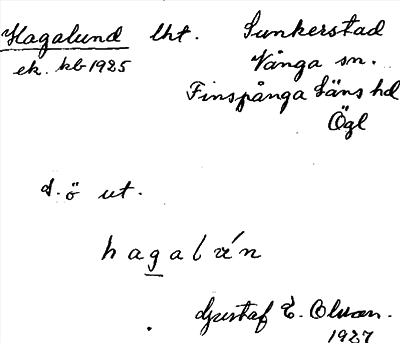 Hagalund lht. Sunkerstad
ek. kb 1925 Vånga sn.
Finspånga läns hd
Ögl
d. ö ut.
hagal
Gustaf E. Olsson.
1927